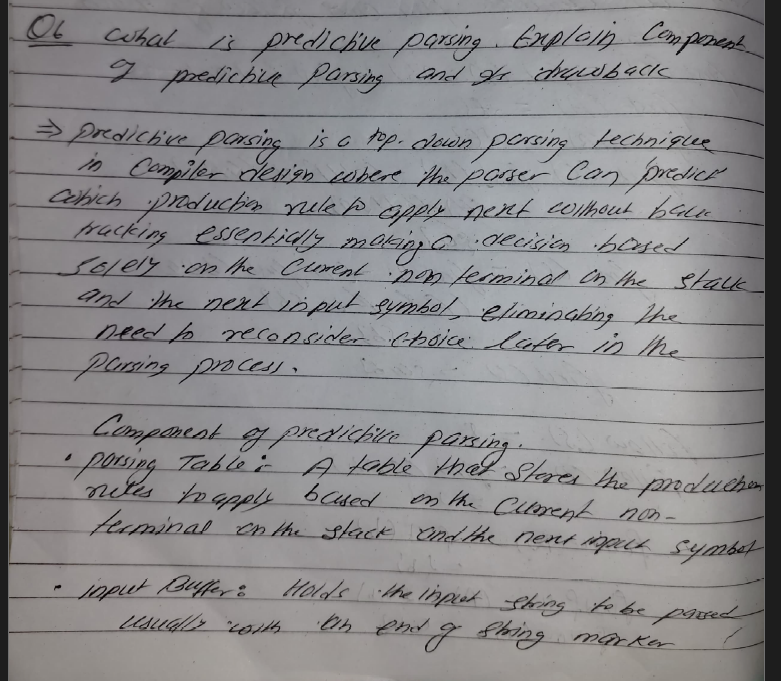 Q6 What is predictive parsing. Explain Component
of predictive Parsing and its drawback
⇒ Predictive parsing is a top-down parsing technique
in Compiler design where the parser Can predict
which production rule to apply next without back
tracking essentially making a decision based
solely on the current non terminal on the stack
and the next input symbol, eliminating the
need to reconsider choice later in the
parsing process.
Component of predictive parsing.
• parsing Table: A table that stores the production
rules to apply based on the Current non-
terminal on the stack and the next input symbol
• input Buffer: Holds the input string to be parsed
usually with an end of string marker